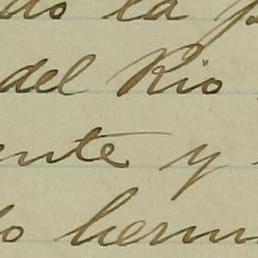 do la p
del Rio
ente y
lo herm